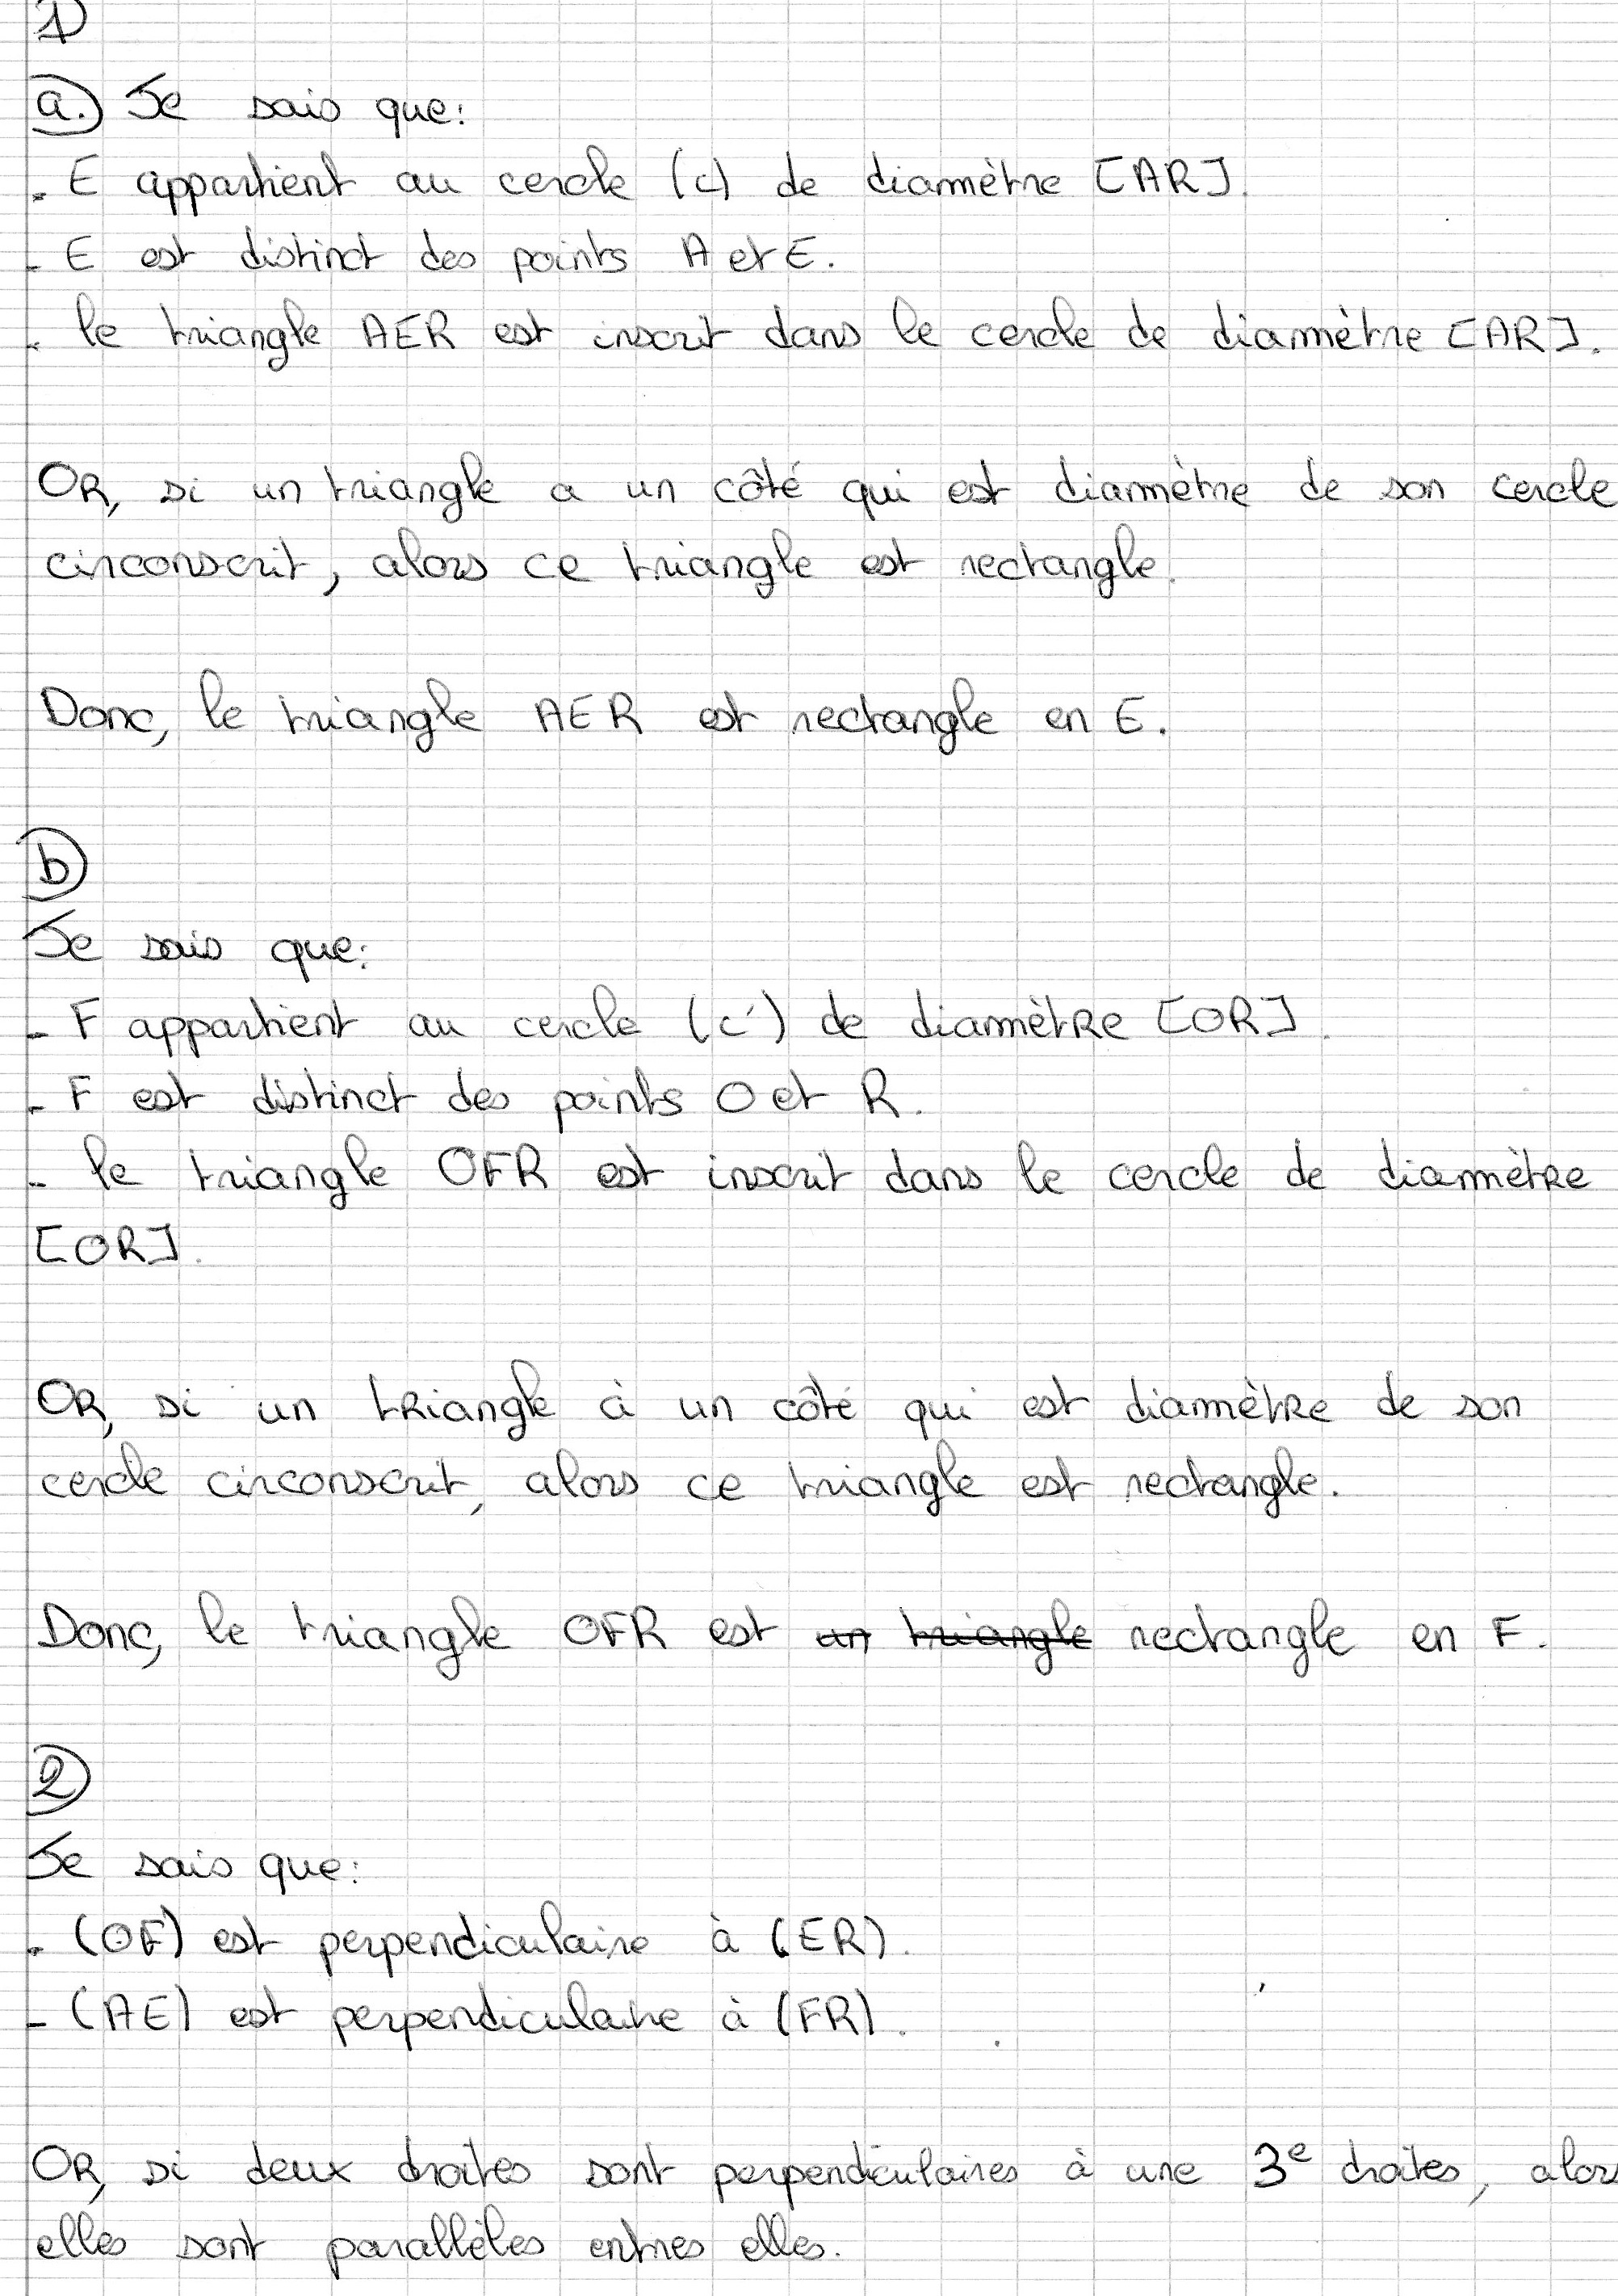 1)
a.) Je sais que:
- E appartient au cercle (c) de diamètre [AR].
- E est distinct des points A et E.
- le triangle AER est inscrit dans le cercle de diamètre [AR].
OR, si un triangle a un côté qui est diamètre de son cercle
circonscrit, alors ce triangle est rectangle.
Donc, le triangle AER est rectangle en E.
b)
Je sais que:
- F appartient au cercle (c') de diamètre [OR].
- F est distinct des points O et R.
- le triangle OFR est inscrit dans le cercle de diamètre
[OR].
OR, si un triangle à un côté qui est diamètre de son
cercle circonscrit, alors ce triangle est rectangle.
Donc, le triangle OFR est un triangle rectangle en F.
2)
Je sais que:
- (OF) est perpendiculaire à (ER).
- (AE) est perpendiculaire à (FR).
OR, si deux droites sont perpendiculaires à une 3e droites, alors
elles sont parallèles entres elles.